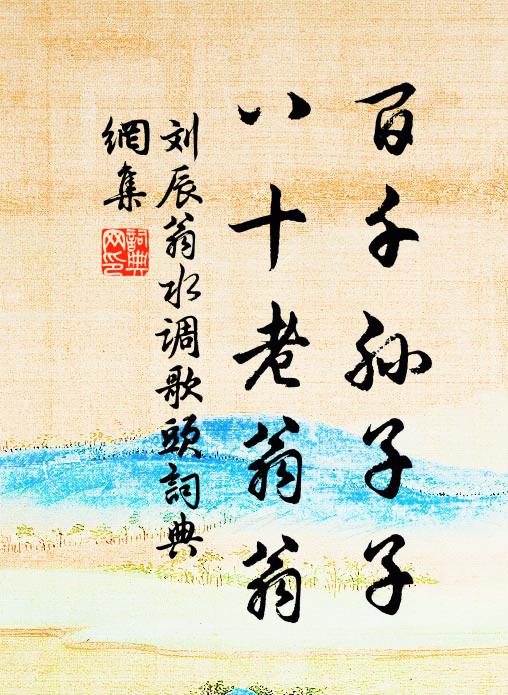 百千孙子子
八十老翁翁
刘辰翁水调歌头詞典
網集
詞典網印